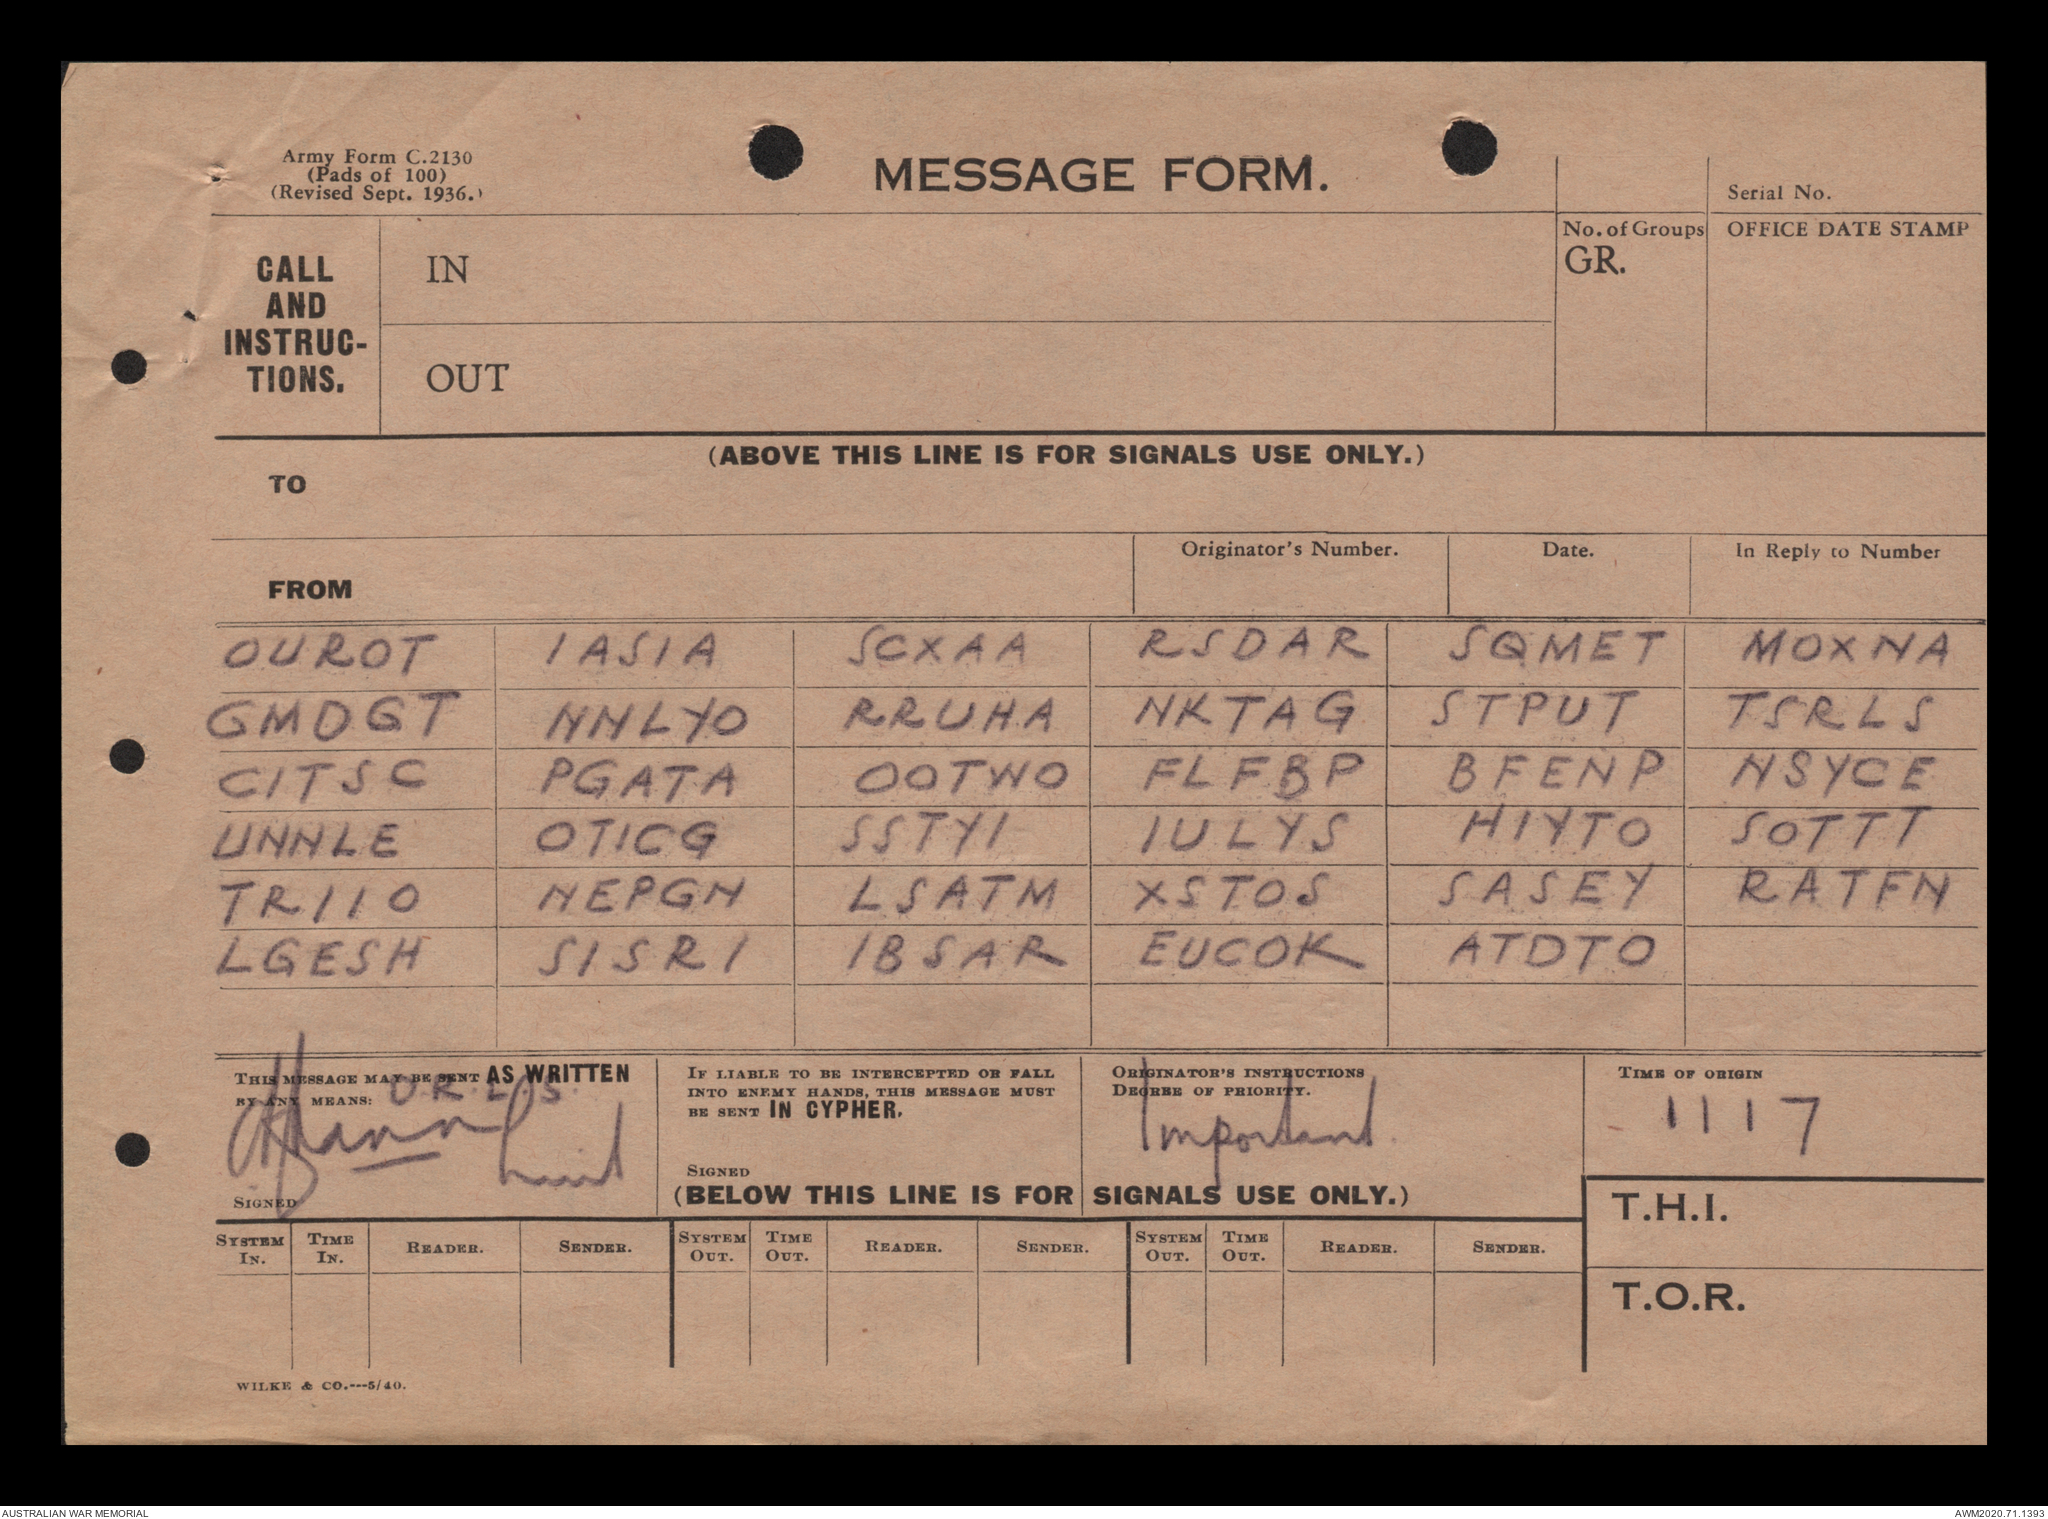 Army Form C.2130
(Pads of 100)
(Revised Sept. 1936.)
MESSAGE FORM.
Serial No.
CALL
AND
INSTRUC-
TIONS.
IN
OUT
No. of Groups
GR.
OFFICE DATE STAMP
(ABOVE THIS LINE IS FOR SIGNALS USE ONLY.)
TO
FROM
Originator's Number.
Date.
In Reply to Number
OUROT IASIA SCXAA RSDAR SQMET MOXNA
GMDGT NNLYO RRUHA NKTAG STPUT TSRLS
CITSC PGATA OOTWO FLFBP BFENP NSYCE
UNNLE OTICG SSTYI IULYS HIYTO SOTTT
TRIIO NEPGN LSATM XSTOS SASEY RATFN
LGESH SISRI IBSAR EUCOK ATDTO
THIS MESSAGE MAY BE SENT AS WRITTEN
BY ANY MEANS:
O.R.L.S.
SIGNED
IF LIABLE TO BE INTERCEPTED OR FALL
INTO ENEMY HANDS, THIS MESSAGE MUST
BE SENT IN CYPHER.
SIGNED
ORIGINATOR'S INSTRUCTIONS
DEGREE OF PRIORITY.
Important.
TIME OF ORIGIN
1117
(BELOW THIS LINE IS FOR SIGNALS USE ONLY.)
T.H.I.
T.O.R.
SYSTEM IN. TIME IN. READER. SENDER. SYSTEM OUT. TIME OUT. READER. SENDER. SYSTEM OUT. TIME OUT. READER. SENDER.
WILKE & CO.---5/40.
AUSTRALIAN WAR MEMORIAL
AWM2020.71.1393